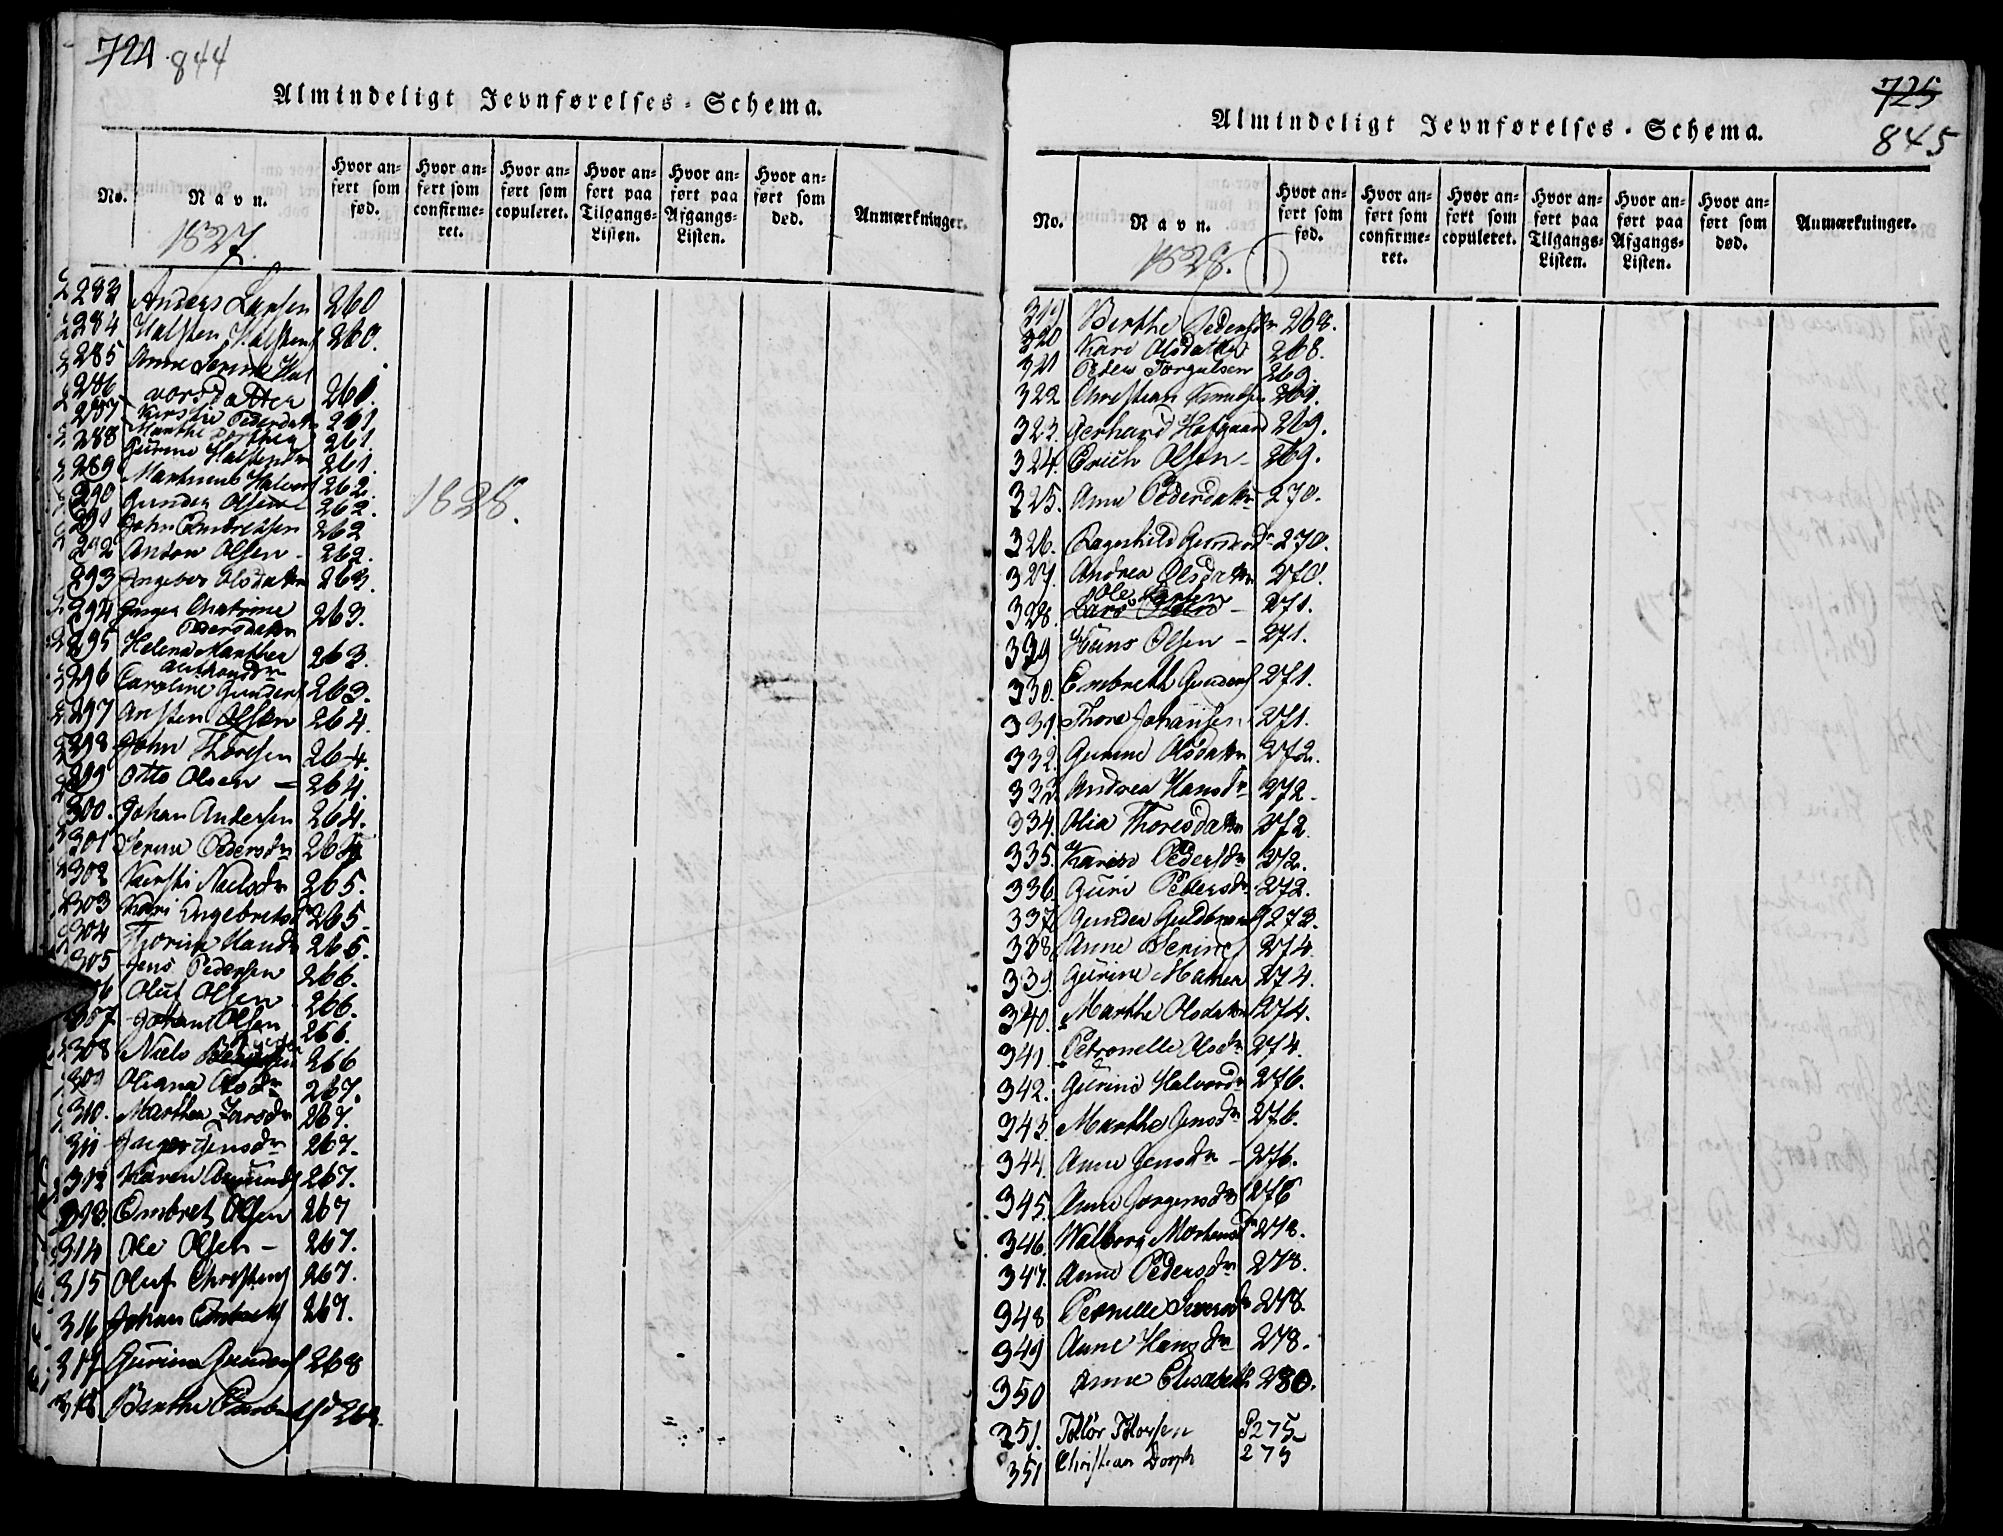 724 844
Almindeligt Jevnførelses-Schema.
No. Navn. Hvor anført som fød. Hvor anført som confirmeret. Hvor anført som copuleret. Hvor anført paa Tilgangs-Listen. Hvor anført paa Afgangs-Listen. Hvor anført som død. Anmærkninger.
1827.
283 Anders Larsen 260
284 Halsten Halstens 260.
285 Anne
286 vorsdatter 261.
287 Kirstie Pedersdatr 261
288 Marthe 261.
Gurine 261.
289 Marthinus Halvors 262.
290 Gunder Olsen 262.
291 John Embretsen 262
292 Anton Olsen - 262.
293 Ingebor Olsdatr 263.
294 Chatrine 263.
Pedersdatr
295 Helena Marthea 263.
296 Caroline Gunders 263.
297 Arsten Olsen 264.
298 John Thoresen 264.
299 Otto Olsen - 264.
300. Johan Andersen 264.
301 Serine Pedersdr 264
302 Kiersti Nielsdr 265.
303 Kari Engebretsdr 265.
304 265.
305 Jens Pedersen 266.
Oluf Olsen 266.
307 Johan Olsen 266.
308 Niels 266
309 Oliana Olsdr 267.
310. Marthea Larsdr 267.
311 Jensdr 267.
312 Karen 267.
313 Embret Olsen 267
314 Ole Olsen - 267.
315 Oluf Christens 267.
316 Johan Embrets 267.
317 Gurine Gunders 268
318 Berthe
1828.
725
845
Almindeligt Jevnførelses-Schema.
No. Navn. Hvor anført som fød. Hvor anført som confirmeret. Hvor anført som copuleret. Hvor anført paa Tilgangs-Listen. Hvor anført paa Afgangs-Listen. Hvor anført som død. Anmærkninger.
1828.
319 Berthe Pedersdr 268.
320 Kari Olsdatter 268.
321 Peder Torgulsen 269
322 Christian Knudsen 269.
323. Gerhard Hofgaard 269.
324. Erich Olsen - 269.
325. Anne Pedersdatr 270.
326. Ragnhild 270.
327. Andrea Olsdatr 270.
Ole Larsen
328. Lars - 271.
329 Hans Olsen - 271.
330. Embreth Gunders 271.
331. Thore Johansen 271.
332. Gurine Olsdatr 272.
333. Andrea Hansdr 272.
334. Olia Thoresdatr 272.
335. Karen Pedersdr 272.
336. Guri Pedersdr 272.
337. Gunder Guldbrands 273.
338. Anne Serine 274.
339. Gurine 274.
340. Marthe Olsdatr 274.
341. Petronelle Olsdr 274.
342. Gurine Halvordr 276.
343. Marthe Jensdr 276.
344. Anne Jensdr - 276.
345. Anne Jorgensdr 276
346. Walborg Mortensd 278.
347. Anne Pedersdr 278.
348 Pernille 278.
349 Anne Hansdr 278.
350 Anne Elisabeth 280.
351. Thor Thorsen P275
351 Christian Dorph 275